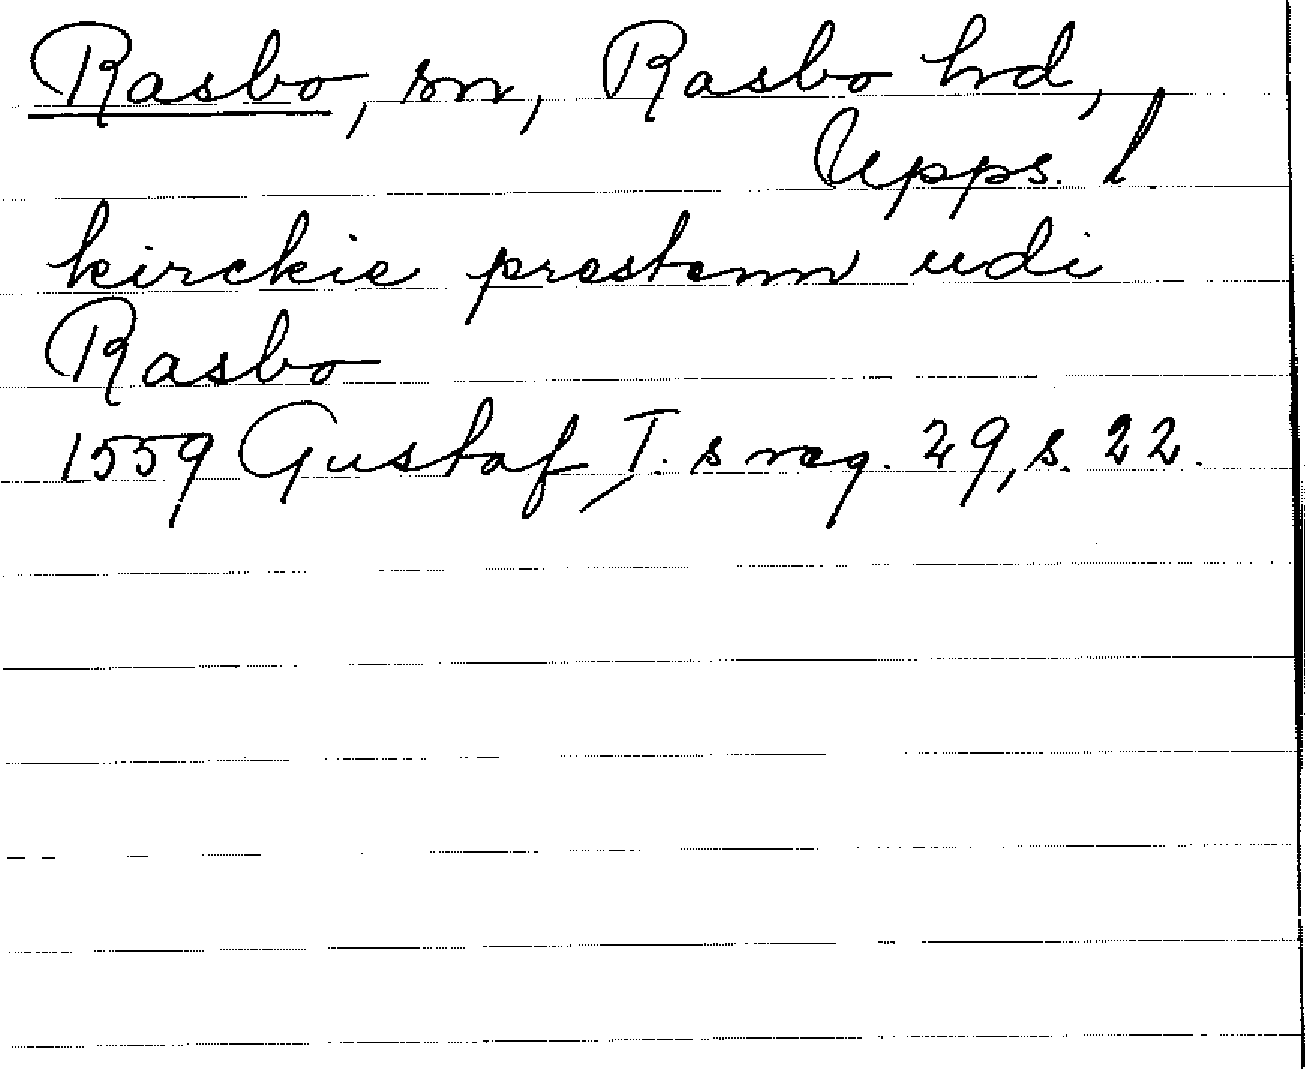 Rasbo, sn, Rasbo hd,
Upps. l.
kirckie prestenn udi
Rasbo
1559 Gustaf I. s reg. 29, s. 22.